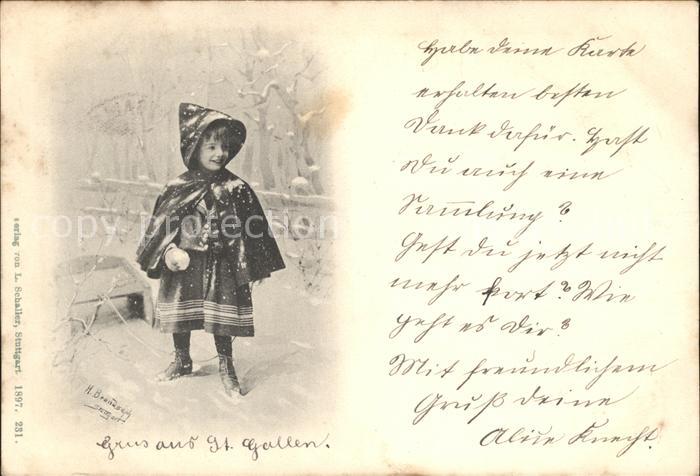 Habe deine Karte
erhalten besten
Dank dafür. Hast
Du auch eine
Sammlung?
Gest du jetzt nicht
mehr fort? Wie
geht es Dir?
Mit freundlichem
Gruß deine
Alice Knecht.
Gruss aus St. Gallen.
H. Brandseph
Stuttgart
Verlag von L. Schaller, Stuttgart 1897. 231.
copy protection